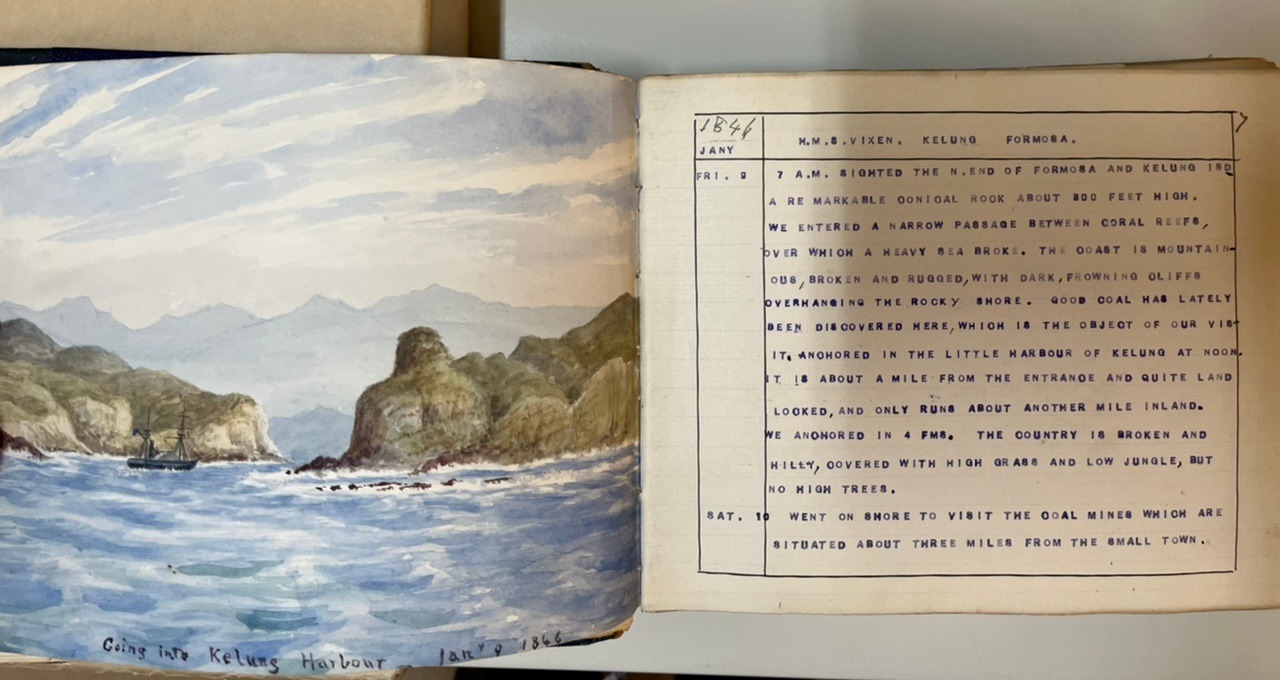 Going into Kelung Harbour Jany 9 1846
1846
JANY
H.M.S.VIXEN. KELUNG FORMOSA.
7
FRI. 9 7 A.M. SIGHTED THE N.END OF FORMOSA AND KELUNG ISD
A RE MARKABLE CONICAL ROCK ABOUT 800 FEET HIGH.
WE ENTERED A NARROW PASSAGE BETWEEN CORAL REEFS,
OVER WHICH A HEAVY SEA BROKE. THE COAST IS MOUNTAIN-
OUS, BROKEN AND RUGGED, WITH DARK, FROWNING CLIFFS
OVERHANGING THE ROCKY SHORE. GOOD COAL HAS LATELY
BEEN DISCOVERED HERE, WHICH IS THE OBJECT OF OUR VIS-
IT. ANCHORED IN THE LITTLE HARBOUR OF KELUNG AT NOON.
IT IS ABOUT A MILE FROM THE ENTRANCE AND QUITE LAND
LOCKED, AND ONLY RUNS ABOUT ANOTHER MILE INLAND.
WE ANCHORED IN 4 FMS. THE COUNTRY IS BROKEN AND
HILLY, COVERED WITH HIGH GRASS AND LOW JUNGLE, BUT
NO HIGH TREES.
SAT. 10 WENT ON SHORE TO VISIT THE COAL MINES WHICH ARE
SITUATED ABOUT THREE MILES FROM THE SMALL TOWN.